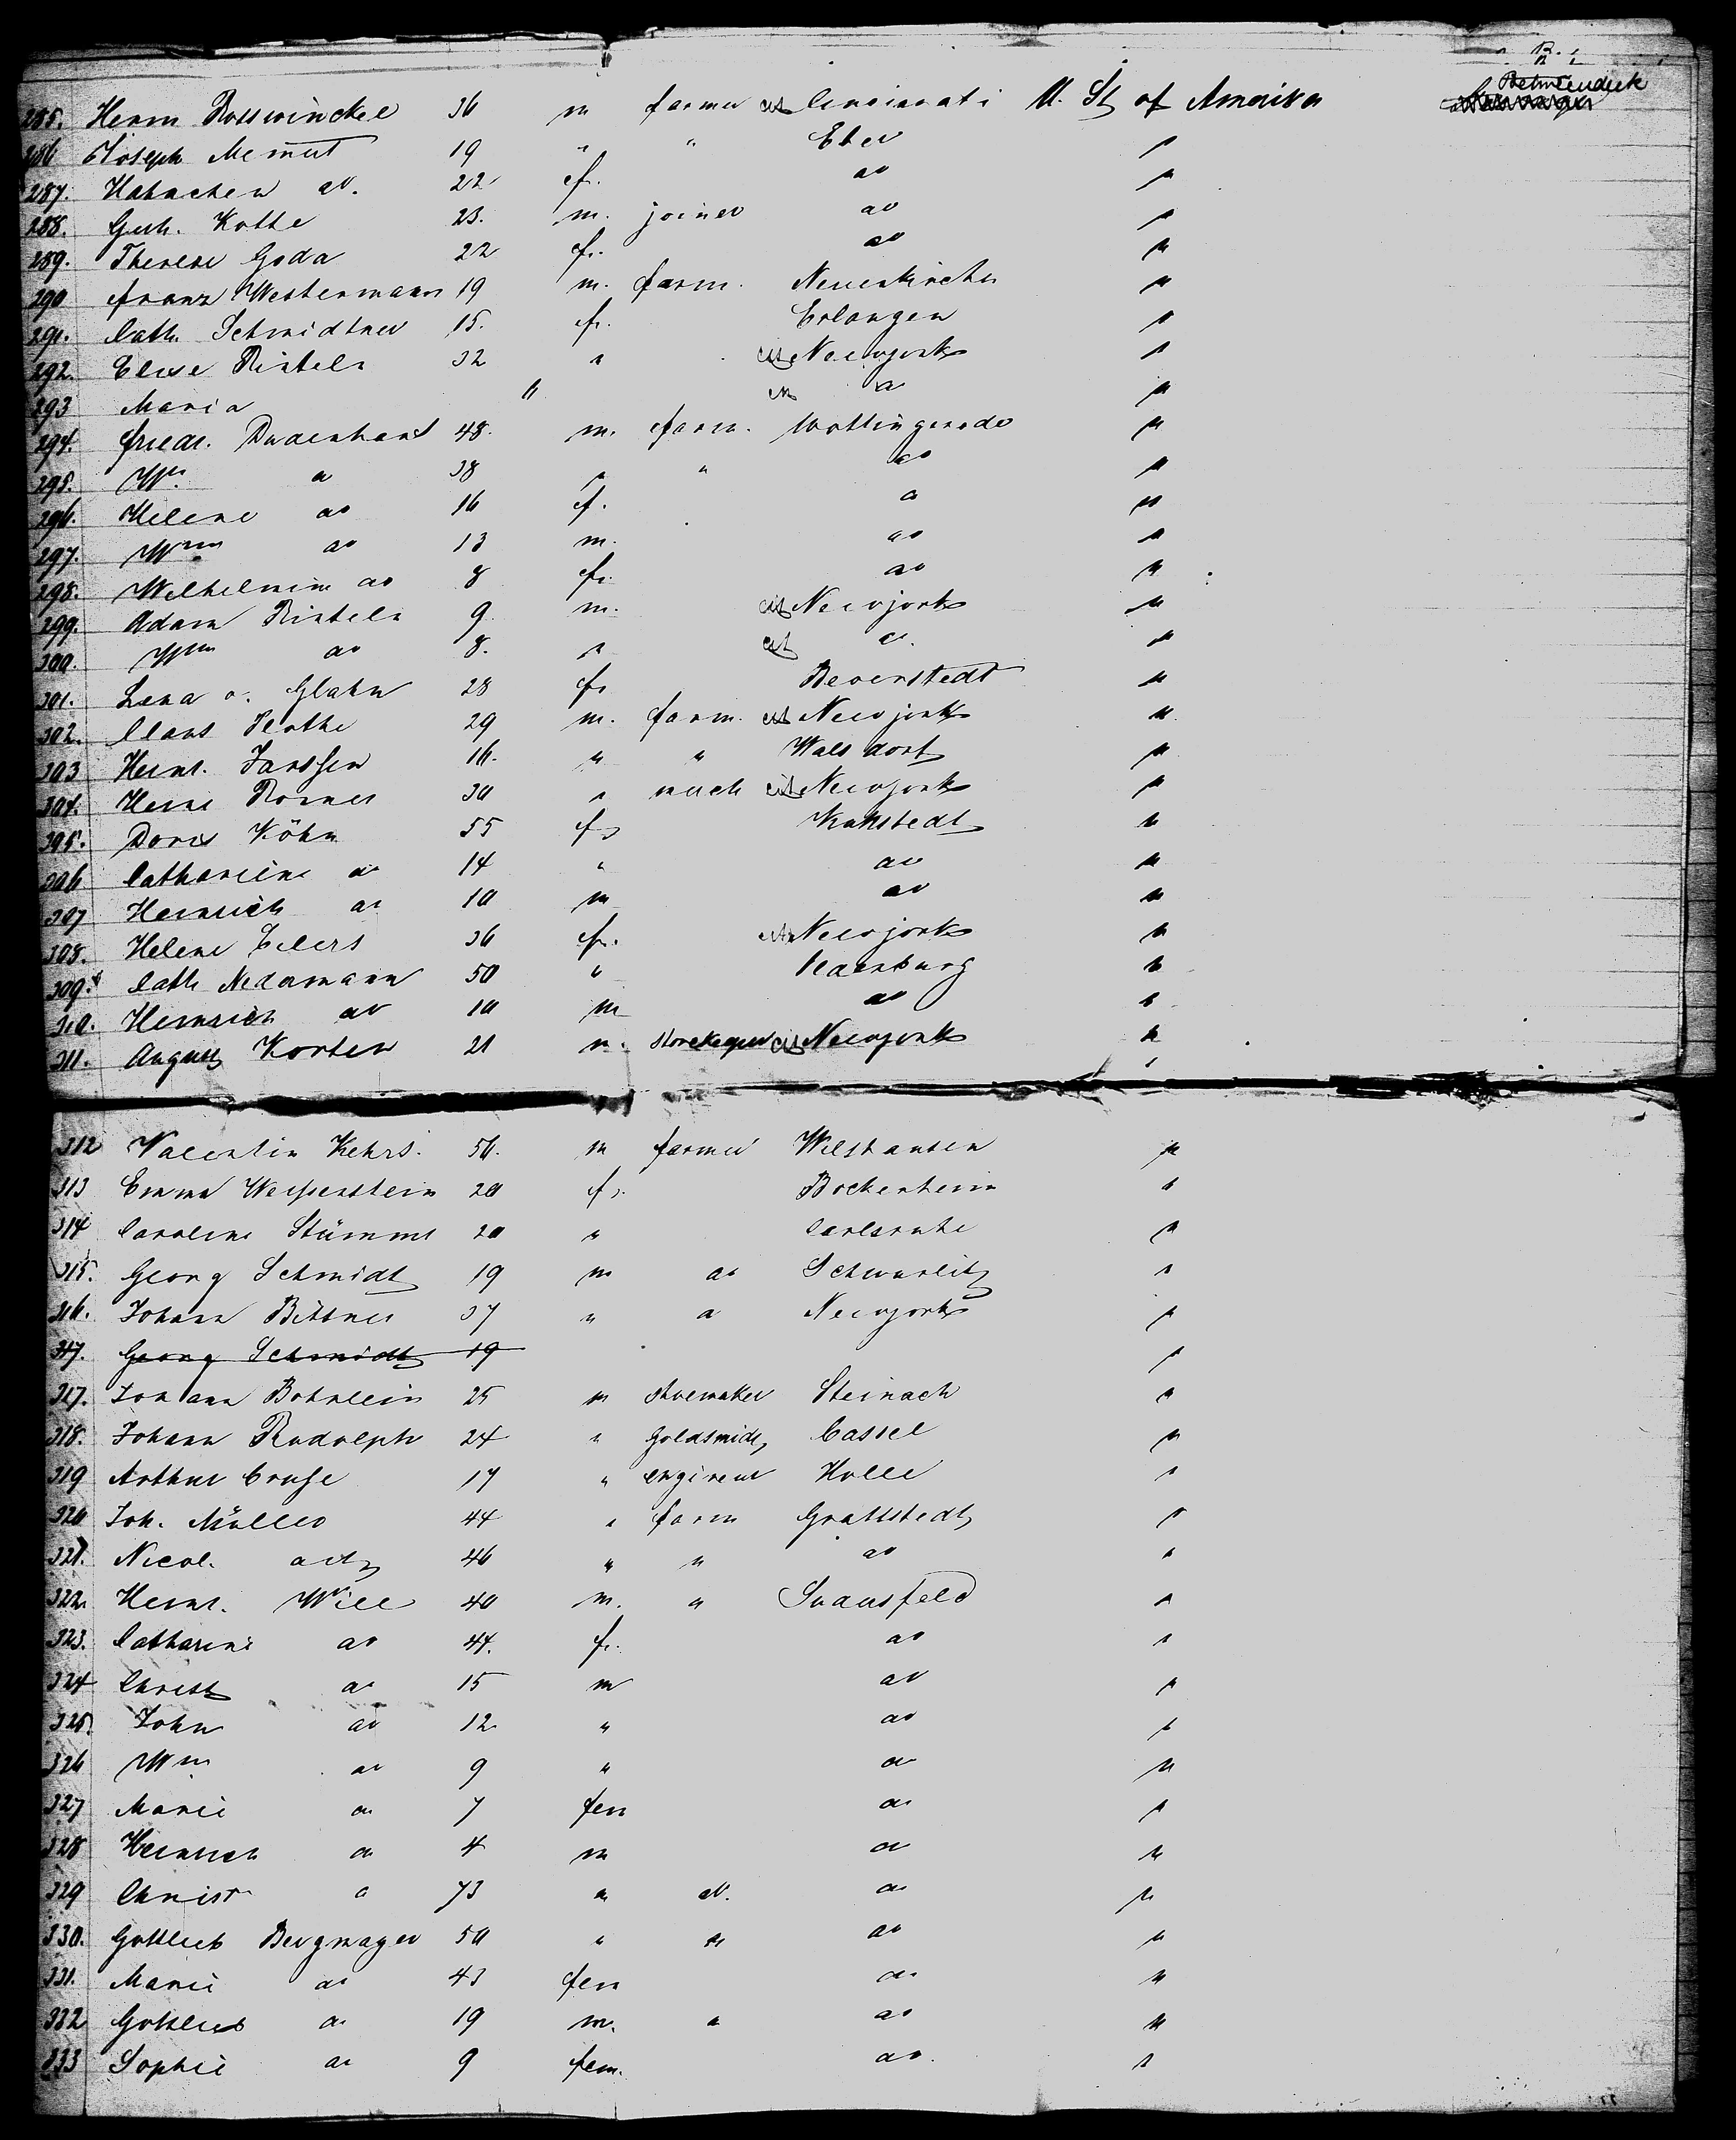 285. Herm Rosswinckel 36 m farmer cit Cincinati U. St of Amerika
286 Joseph Memmet 19 " " Eher "
287. Hannchen do. 22 f. do "
288. Gerh. Kotte 23. m. joiner do "
289. Therese Goda 22 f. do "
290 Franz Westermann 19 m. farm. Neuenkirchen "
291. Cath. Schmidtner 15. f. Erlangen "
292. Elise Rinteln 32 " cit Newyork "
293 Maria " cit " "
294. Friedr. Dudenhant 48. m. farm. Woltingerode "
295. Wm. " 38 " " do "
296. Helene do 16 f. " "
297. Wm do 13 m. do "
298. Wilhelmine do 8 f. do "
299. Adam Rinteln 9 m. cit Newyork "
300. Wm do 8. " cit " "
301. Lena v. Glahn 28 f. Beverstedt "
302. Claus Plothe 29 m. farm. cit Newyork "
303 Heinr. Janssen 16. " " Walsdorf "
304. Heinr Rosner 30 " mech cit Newyork "
305. Doris Köhn 55 f. Kuhstedt "
306 Catharine do 14 " do "
307 Heinrich do 10 m do "
308. Helene Eilers 36 f. cit Newyork "
309. Cath Nedermann 50 " "
310. Heinrich do 10 m do "
311. August Korten 21 m. storekeeper cit Newyork "
312 Valentin Kehrs. 56. m farmer "
313 Emma Weissenstein 20 f. Bockenheim "
314 Caroline Stümme 20 " Carlsruhe "
315. Georg Schmidt 19 m do "
316. Johann Bittner 37 " " Newyork "
317. Georg Schmidt 19 "
317. Johann Bohnlein 25 m shoemaker Steinach "
318. Johann Rudolph 24 " goldsmidt Cassel "
319 Arthur Cruse 17 " engineur Halle "
320 Joh. Müller 44 " farm Grattstedt "
321. Nicol. do 46 " " do "
322. Heinr. Will 40 m. " "
323. Catharine do 44. f. do "
324 Christ do 15 m do "
325. John do 12 " do "
326 Wm do 9 " do "
327 Marie do 7 fem do "
328 Heinrich do 4 m do "
329 Christ " 73 " do. do "
330. Gottlieb Bergmayer 50 " " do "
331. Marie do 43 fem do "
332 Gottlieb do 19 m. " do "
333 Sophie do 9 fem. do "